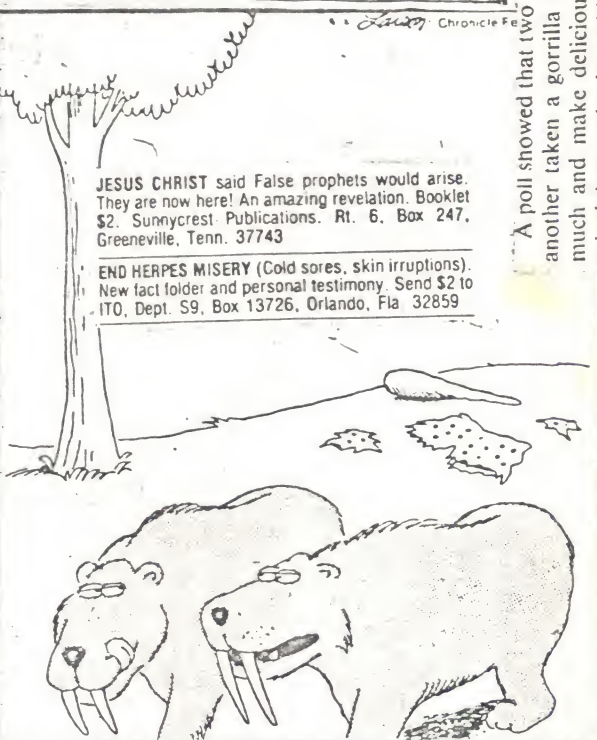 Larson Chronicle Fe
JESUS CHRIST said False prophets would arise.
They are now here! An amazing revelation. Booklet
$2. Sunnycrest Publications. Rt. 6, Box 247,
Greeneville, Tenn. 37743
END HERPES MISERY (Cold sores, skin irruptions).
New fact folder and personal testimony. Send $2 to
ITO, Dept. S9, Box 13726, Orlando, Fla 32859
A poll showed that two
another taken a gorrilla
much and make deliciou